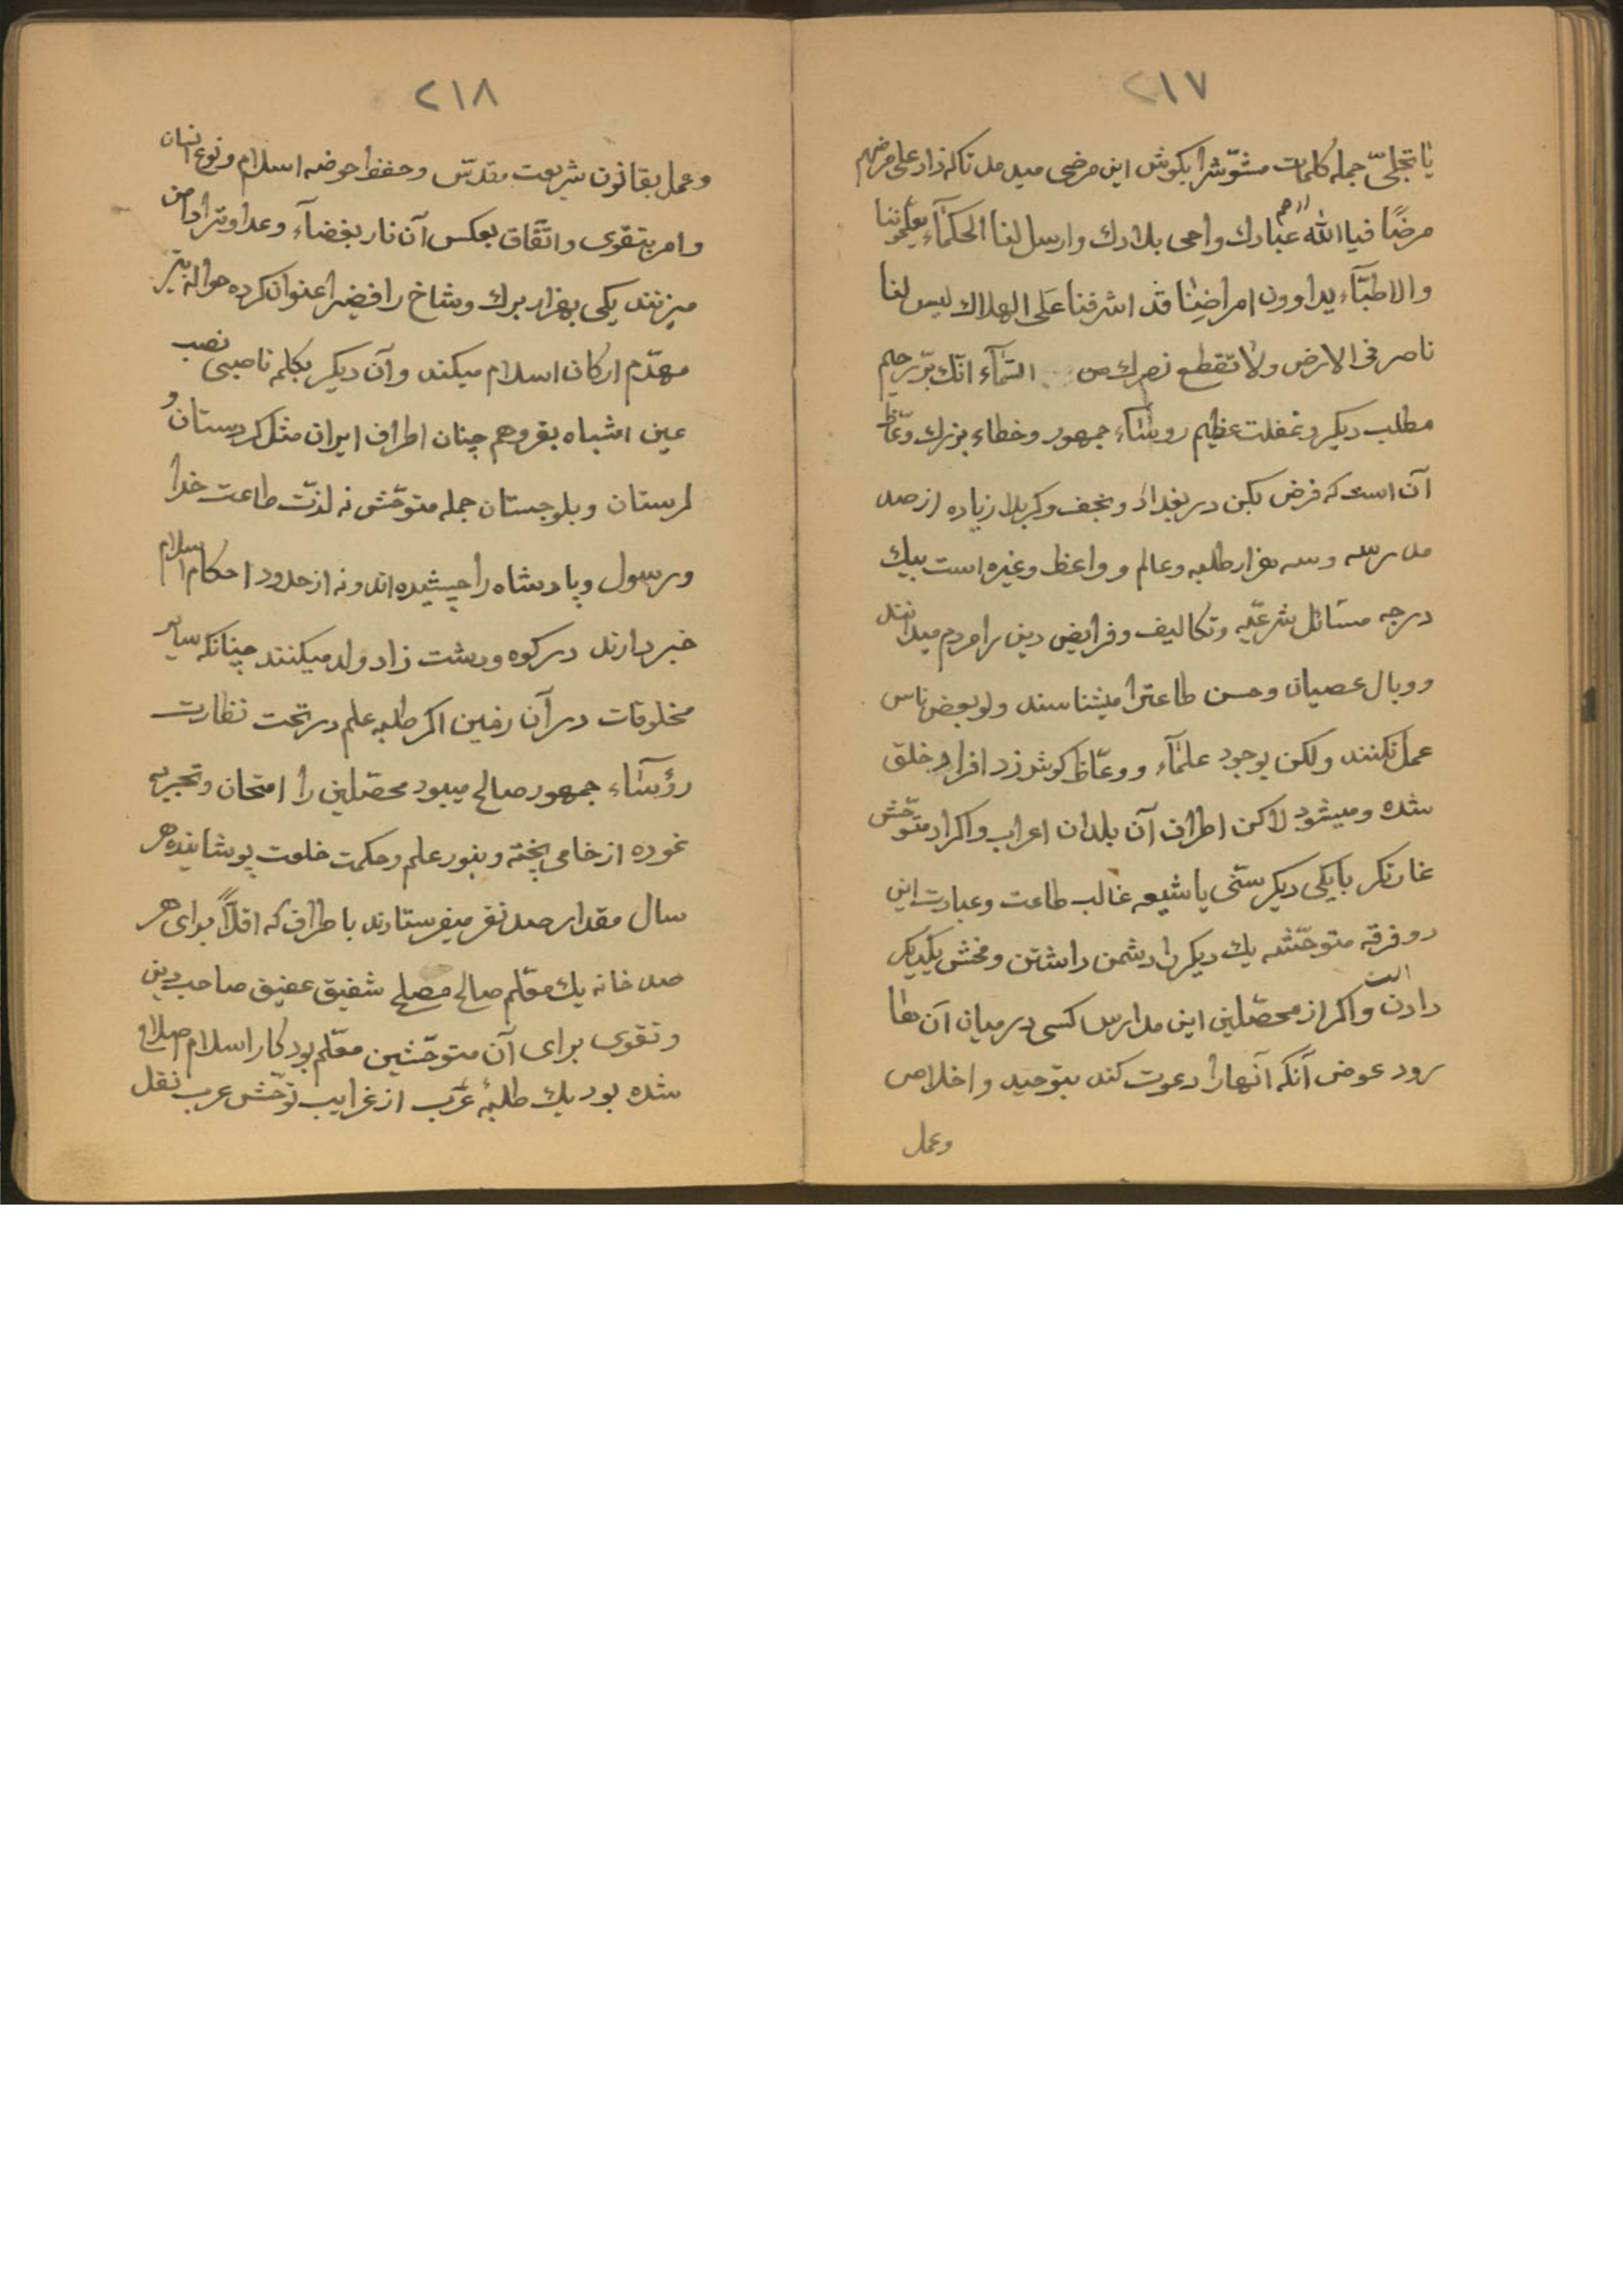 ٢١٧
یا تجلیّ جمله کلمات مشوّشرا بکوش این مرضی میدمد تاکه زاد علی مرضهم
مرضًا فیا الله ارحم عبادك واحی بلادك وارسل لنا الحکمآء یعلّموننا
والاطبّآء یداوون امراضِنا قد اشرفنا عَلَی الهلاك لیس لنا
ناصر فی الارض ولا تقطع نصرك من السّمآء انّك برّ رحیم
مطلب دیکر وغفلت عظیم روسٰاء جمهور وخطاء بزرك وعّاظ
آن است که فرض بکن در بغداد ونجف وکربلا زیاده از صد
مدرسه وسه هزار طلبه وعالم وواعظ وغیره است بیك
درجه مسائل شرعّیه وتکالیف وفرایض دین را مردم میدانند
ووبال عصیان وحسن طاعترا میشناسند ولو بعض ناس
عمل نکنند ولکن بوجود علمٰآء ووعّاظ کوش زد افراد خلق
شده ومیشود لاکن اطراف آن بلدان اعراب واکراد متوحّش
غارتکر بایکی دیکر سنّی یا شیعه غالب طاعت وعبادت این
دو فرقه متوحّشه یك دیکر را دشمن داشتن وفحش بیکدیکر
دادن است واکر از محصّلین این مدارس کسی در میان آن ها
رود عوض آنکه آنهارا دعوت کند بتوحید واخلاص
وعمل
٢١٨
وعمل بقانون شریعت مقدّس وحفظ حوضه اسلام ونوع انسان
وامر بتقوی واتّفاق بعکس آن نار بغضآء وعداوترا دامن
میزنند یکی بهزار برك وشاخ رافضیرا عنوان کرده حواله بتیر
مهدّم ارکان اسلام میکند وآن دیکر بکلم ناصبی نصب
عین اشباه بقر وهم چنان اطراف ایران مثل کردستان و
لرستان وبلوجستان جمله متوحّش نه لذّت طاعت خدا
ورسول وپادشاه را چیشیده اند ونه از حدود احکام اسلام
خبر دارند در کوه ودشت زاد ولد میکنند چنانکه سایر
مخلوقات در آن زمین اکر طلبه علم در تحت نظارت
رؤسٰآء جمهور صالح میبود محصّلین را امتحان وتجربه
نموده از خامی پخته وبنور علم وحکمت خلعت پوشانیده هر
سال مقدار صد نفر میفرستادند باطراف که اقلّاً برای هر
صد خانه یك معّلم صالح مصلح شفیق عفیق صاحب دین
وتقوی برای آن متوحّشین معّلم بود کار اسلام اصلاح
شده بود یك طلبهٔ عَرَب از غرایب توحّش عرب نقل